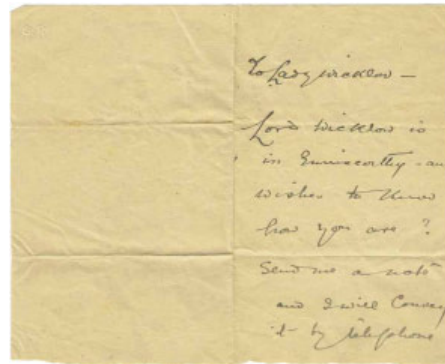 To Lady Wicklow —
Lord Wicklow is
in Enniscorthy - an
wishes to know
how you are ?
Send me a note
and I will Convey
it by telephone